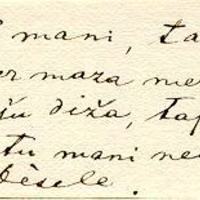 mani, ta
er maza me
šu diža, tap
tu mani ne
Dēsele.